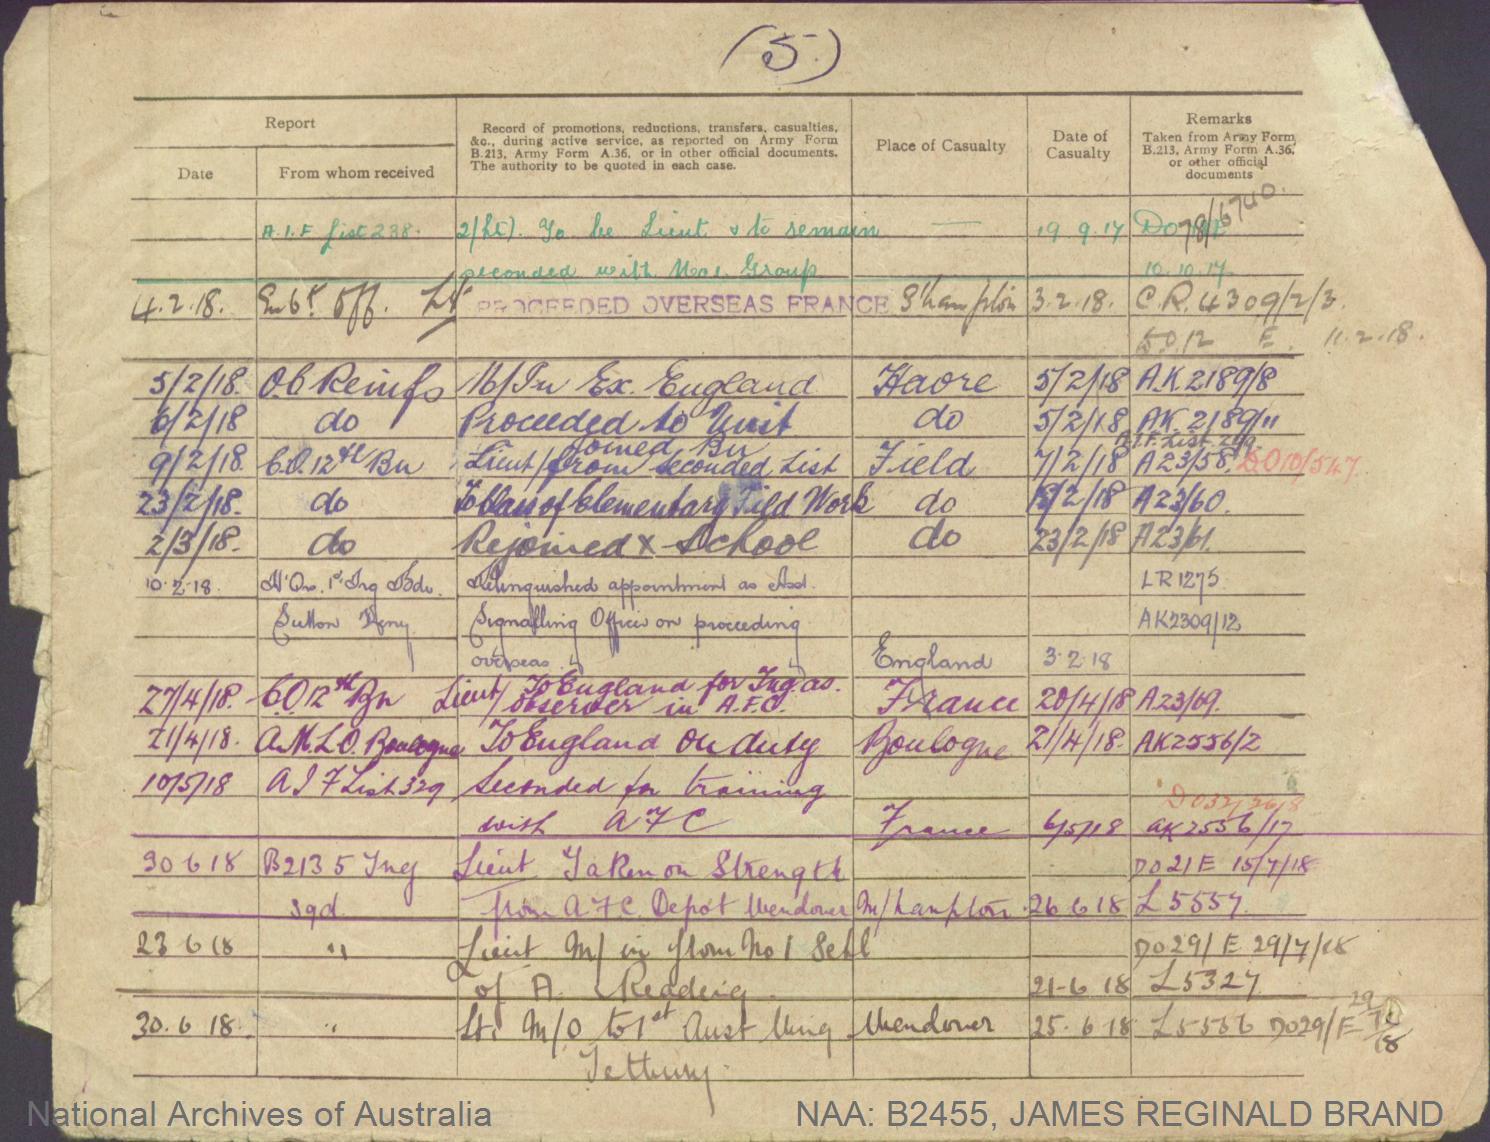 (5.)
Report
Date
From whom received
Record of promotions, reductions, transfers, casualties, &c., during active service, as reported on Army Form B.213, Army Form A.36, or in other official documents. The authority to be quoted in each case.
Place of Casualty
Date of Casualty
Remarks
Taken from Army Form B.213, Army Form A.36, or other official documents
A.I.F List 238. 2/Lt). To be Lieut & to remain — 19.9.17 DO 78/6740.
seconded with No 1. Group 10.10.17.
4.2.18. Embt Off. Lt PROCEEDED OVERSEAS FRANCE S'hampton 3.2.18. C.R. 4309/2/3.
50.12 E. 11.2.18.
5/2/18. O.C Reinfs M/In Ex. England Havre 5/2/18 A.K 2189/8
6/2/18 do Proceeded to Unit do 5/2/18 AK. 2189/11
joined Bn A.I.F. List
9/2/18. C.O. 12th Bn Lieut/from seconded List Field 7/2/18 A23/58. DO10/547.
23/2/18. do To Class of Elementary Field Work do /2/18 A23/60.
2/3/18. do Rejoined x School do 23/2/18 A23/61.
10.2.18. H'Qrs. 1st Trg Bde. Relinquished appointment as Asst. LR1275.
Sutton Veny Signalling Officer on proceeding AK2309/12
overseas England 3.2.18
27/4/18. C.O. 12th Bn Lieut/ To England for Trg. as France 20/4/18 A23/69.
observer in A.F.C.
21/4/18. A.M.L.O. Boulogne To England on duty Boulogne 21/4/18. AK2556/2
10/5/18 A I F List 329 Seconded for training
DO32/
with A F C France 6/5/18 AK2556/17
30 6 18 B213 5 Trg Lieut Taken on Strength DO21E 15/7/18
sqd. from A F C Depot Wendover M/hampton. 26 6 18 L 5557.
23 6 18 " Lieut M/ in from No 1 Schl DO29/E 29/7/18
of A. Reading. 21-6 18 L 5327
30. 6 18. " Lt. M/O to 1st Aust Wing Wendover 25. 6 18 L 5556 DO29/E 29
Tetbury.
National Archives of Australia
NAA: B2455, JAMES REGINALD BRAND